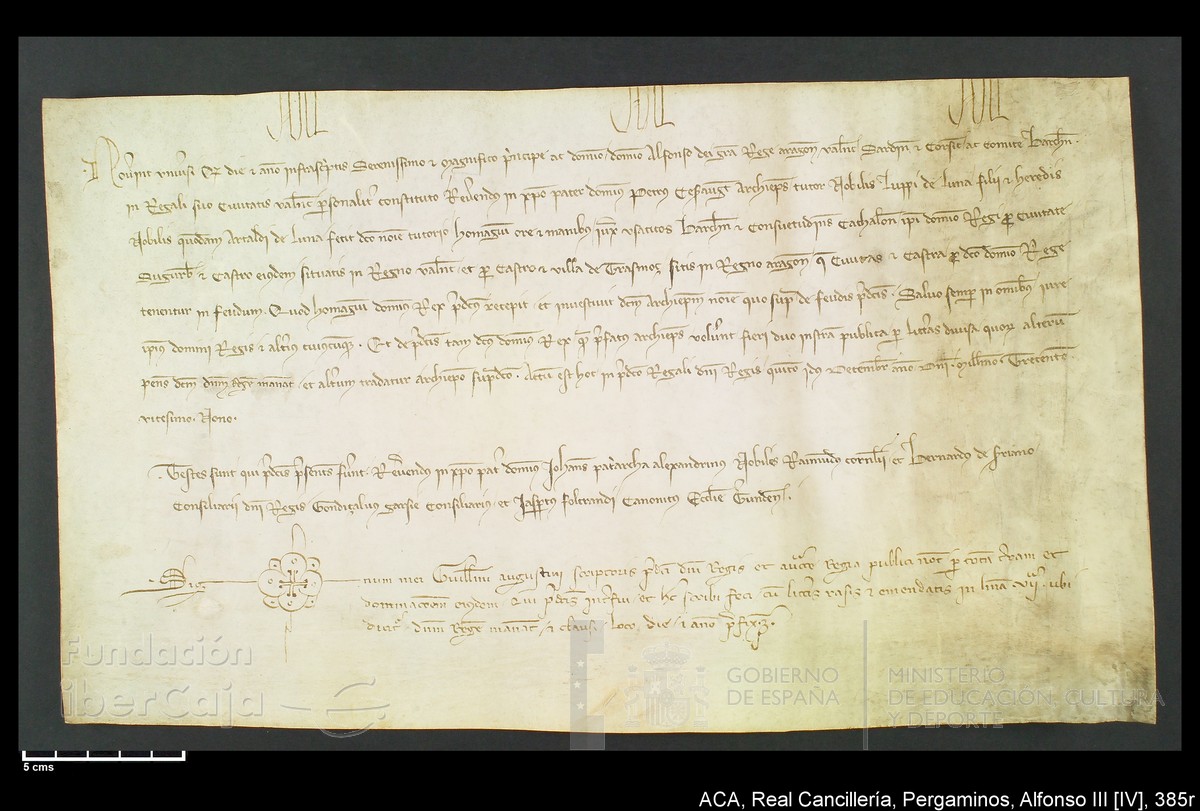 Noverint universi Qd die et anno infrascriptis Serenissimo et Magnifico principe ac domino, domino Alfonso dei gra Rege aragon valent Sardin et Corsic ac comite Barchn.
in Regali suo Civitatis valent personaliter constituto Reverendus in xpo pater dominus Petrus Cesaugust Archieps tutor Nobilis Luppi de luna filii et heredis
Nobilis quondam Artaldi de luna fecit dco noie tutorio homagiu ore et manibus iuxta usaticos Barchn et Consuetudines Cathalon ipi domino Regi pro Civitate
Sugurbi et Castro eiusdem situatis in Regno valent et pro Castro et villa de Trasmoz sitis in Regno aragon que Civitas et Castra pro dco domino Rege
tenentur in feudum. Quod homagiu dominus Rex pdcus recepit et investivit dcm Archiepm noie quo supra de feudis pdcis. Salvo semper in omibus iure
ipius domini Regis et alterius cuiuscumque. Et de pdcis tam dcus dominus Rex quam pfatus archieps voluerunt fieri duo instra publica per litteras divisa quorum alterum
penes dcm dnm Regem maneat et alterum tradatur archiepo supradco. Actum est hoc in pdco Regali dni Regis quinto idus Decembr anno Dni millimo Trecentesimo
vicesimo Nono.
Testes sunt qui pdcis psentes fuerunt. Reverendus in xpo pater dominus Iohans patriarcha alexandrinus Nobiles Raimundus cornelii et Bernardus de
Consiliarii dni Regis Gondiçalvus garsie Consiliarius et Iaspertus foltrandi Canonicus Ecclie Gerunden.
Sig num mei Guillmi augustini scriptoris pdci dni Regis et auctte Regia publici not per totam terram et
dominacoem eiusdem. Qui pdcis interfui et hec scribi feci cum litteris rasis et emendatis in linea VIIa ubi
dicitur dnm Regem maneat et clausi loco die et anno pfixis
Fundación
iberCaja
GOBIERNO
DE ESPAÑA
MINISTERIO
DE EDUCACIÓN, CULTURA
Y DEPORTE
5 cms
ACA, Real Cancillería, Pergaminos, Alfonso III [IV], 385r